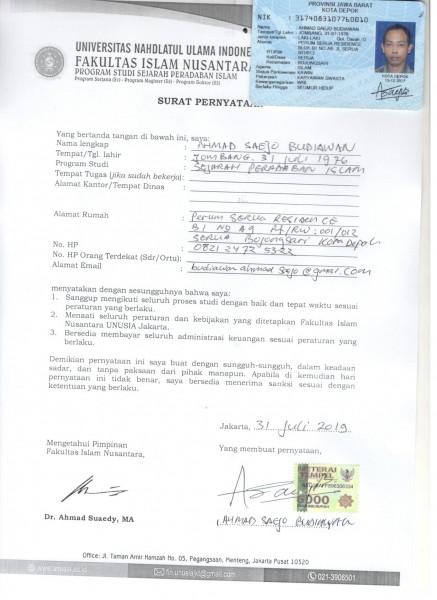 UNIVERSITAS NAHDLATUL ULAMA INDONE
FAKULTAS ISLAM NUSANTARA
PROGRAM STUDI SEJARAH PERADABAN ISLAM
Program Sarjana (S1) - Program Magister (S2) - Program Doktor (S3)
PROVINSI JAWA BARAT
KOTA DEPOK
NIK : 3174083107760010
Nama : AHMAD SAEJO BUDIAWAN
Tempat/Tgl Lahir : JOMBANG, 31-07-1976
LAKI-LAKI Gol. Darah :O
Alamat : PERUM SERUA RESIDENCE
BLOK B1 NO A9 JL SERUA
RT/RW : 001/012
Kel/Desa : SERUA
Kecamatan : BOJONGSARI
Agama : ISLAM
Status Perkawinan: KAWIN
Pekerjaan : KARYAWAN SWASTA
Kewarganegaraan: WNI
Berlaku Hingga : SEUMUR HIDUP
KOTA DEPOK
SURAT PERNYATA
Yang bertanda tangan di bawah ini, saya:
Nama lengkap : AHMAD SAEJO BUDIAWAN
Tempat/Tgl. lahir : JOMBANG, 31 Juli 1976
Program Studi : SEJARAH PERADABAN ISLAM
Tempat Tugas (jika sudah bekerja) :
Alamat Kantor/Tempat Dinas :
Alamat Rumah : Perum SERUA RESIDENCE
B1 NO A9 RT/RW : 001/012
SERUA Bojongsari Kota Depok
No. HP : 0821 2472 5322
No. HP Orang Terdekat (Sdr/Ortu) :
Alamat Email : budiawan ahmad saejo @gmail.com
menyatakan dengan sesungguhnya bahwa saya:
1. Sanggup mengikuti seluruh proses studi dengan baik dan tepat waktu sesuai
peraturan yang berlaku.
2. Menaati seluruh peraturan dan kebijakan yang ditetapkan Fakultas Islam
Nusantara UNUSIA Jakarta.
3. Bersedia membayar seluruh administrasi keuangan sesuai peraturan yang
berlaku.
Demikian pernyataan ini saya buat dengan sungguh-sungguh, dalam keadaan
sadar, dan tanpa paksaan dari pihak manapun. Apabila di kemudian hari
pernyataan ini tidak benar, saya bersedia menerima sanksi sesuai dengan
ketentuan yang berlaku.
Jakarta, 31 Juli 2019
Mengetahui Pimpinan
Fakultas Islam Nusantara,
Yang membuat pernyataan,
METERAI
TEMPEL
6000
Dr. Ahmad Suaedy, MA
AHMAD SAEJO BUDIAWAN
Office: Jl. Taman Amir Hamzah No. 05, Pegangsaan, Menteng, Jakarta Pusat 10320
www.unusia.ac.id
fin.unusiajkt@gmail.com
021-3906501